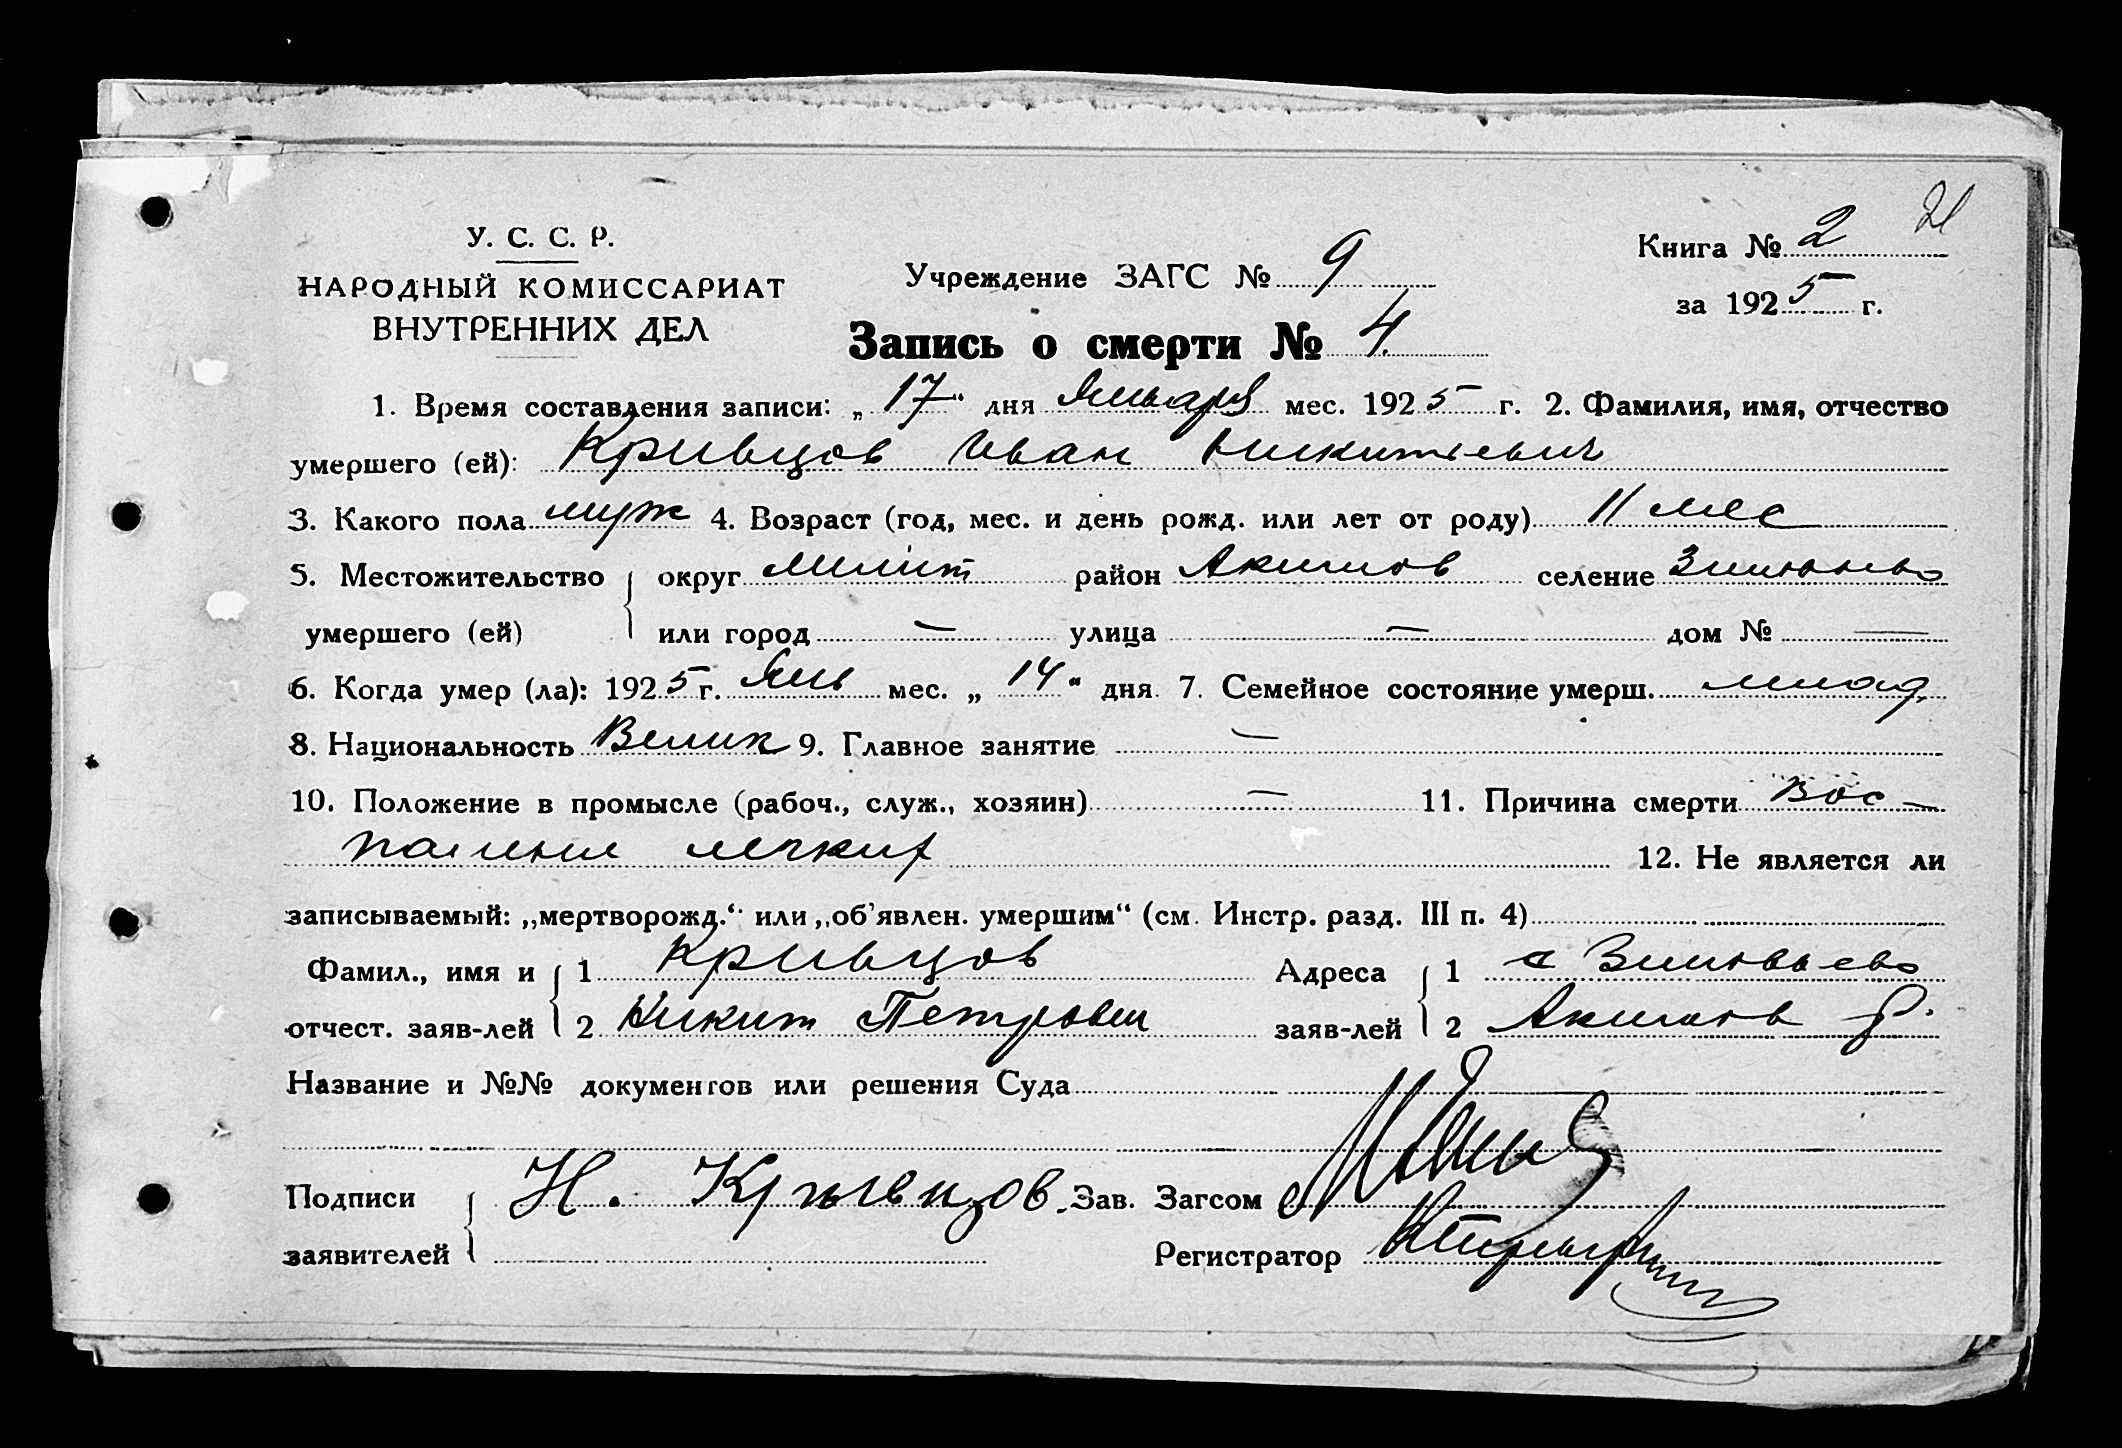 21
У. С. С. Р.
НАРОДНЫЙ КОМИССАРИАТ
ВНУТРЕННИХ ДЕЛ
Учреждение ЗАГС № 9
Книга № 2
за 1925 г.
Запись о смерти № 4.
1. Время составления записи: „17“ дня Января мес. 1925 г. 2. Фамилия, имя, отчество
умершего (ей): Кривцов Иван Никитиевич
3. Какого пола муж 4. Возраст (год, мес. и день рожд. или лет от роду) 11 мес
5. Местожительство округ Мелит район Акимов селение Зиновьево
умершего (ей) или город — улица — дом № —
6. Когда умер (ла): 1925 г. Янв мес. „14“ дня 7. Семейное состояние умерш. млад.
8. Национальность Велик 9. Главное занятие —
10. Положение в промысле (рабоч., служ., хозяин) — 11. Причина смерти Вос-
паление легких 12. Не является ли
записываемый: „мертворожд.“ или „об'явлен. умершим“ (см. Инстр. разд. III п. 4)
Фамил., имя и 1 Кривцов Адреса 1 с Зиновьево
отчест. заяв-лей 2 Никит Петрович заяв-лей 2 Акимов р.
Название и №№ документов или решения Суда
Подписи Н. Крывцов. Зав. Загсом
заявителей Регистратор